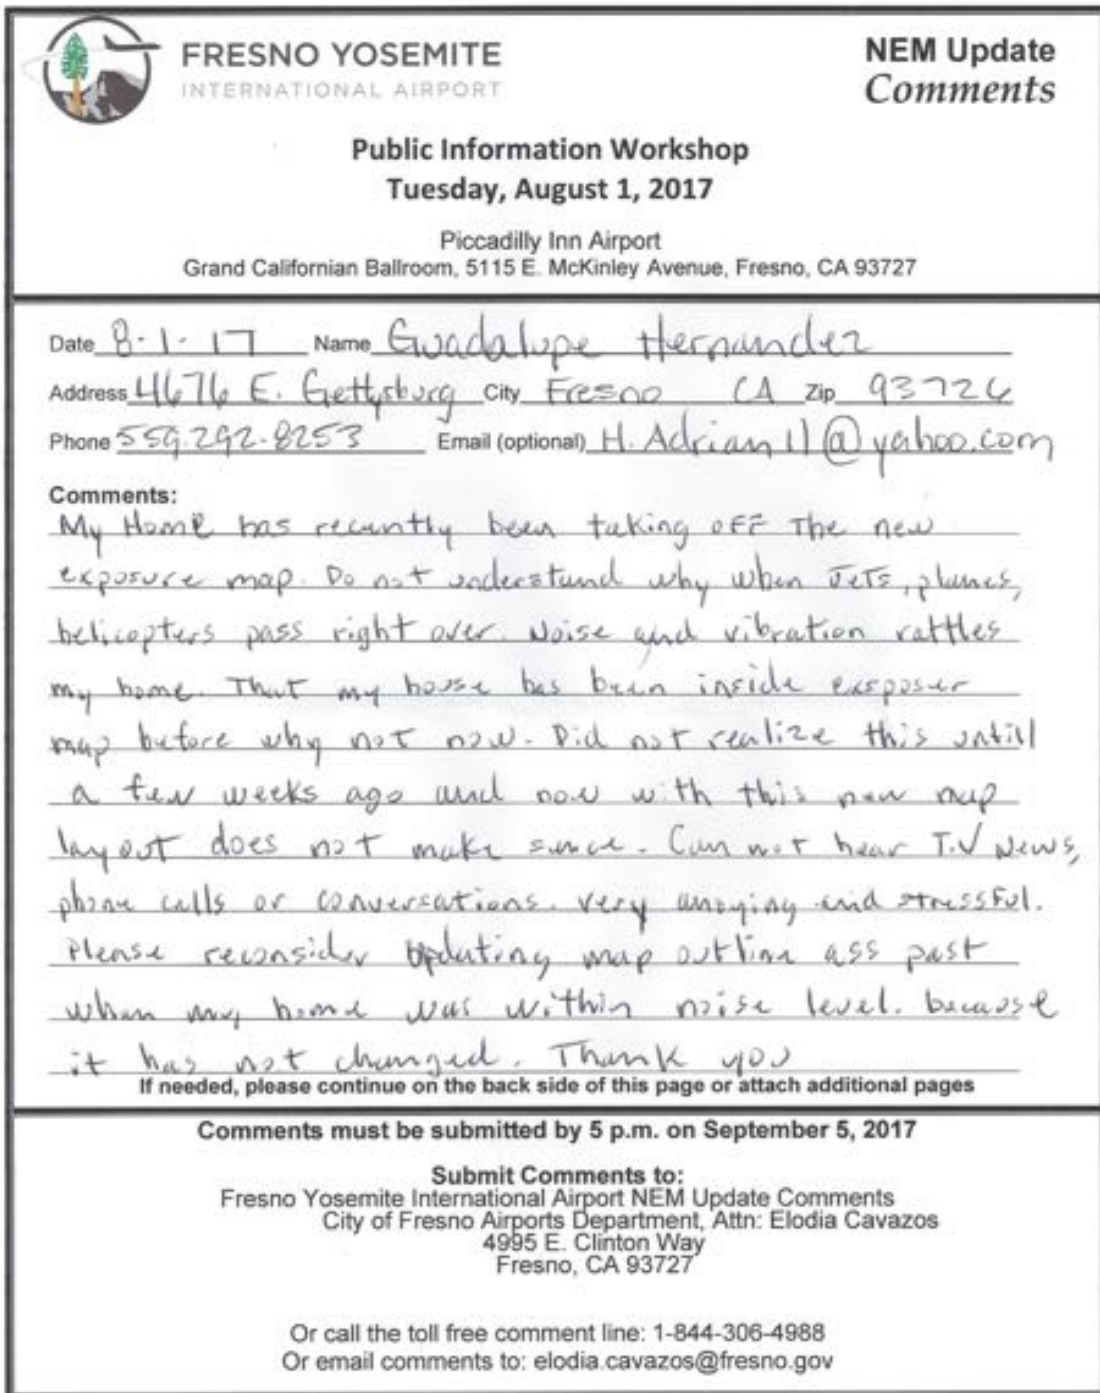 FRESNO YOSEMITE
INTERNATIONAL AIRPORT
NEM Update
Comments
Public Information Workshop
Tuesday, August 1, 2017
Piccadilly Inn Airport
Grand Californian Ballroom, 5115 E. McKinley Avenue, Fresno, CA 93727
Date 8-1-17 Name Guadalupe Hernandez
Address 4676 E. Gettysburg City Fresno CA Zip 93726
Phone 559-292-8253 Email (optional) H.Adrian11@yahoo.com
Comments:
My Home has recently been taking off The new
exposure map. Do not understand why when Jets, planes,
helicopters pass right over. Noise and vibration rattles
my home. That my house has been inside exsposer
map before why not now. Did not realize this untill
a few weeks ago and now with this new map
layout does not make sence. Can not hear T.V News,
phone calls or conversations. very anoying and stressful.
Please reconsider updating map outline ass past
when my home was within noise level. because
it has not changed. Thank you
If needed, please continue on the back side of this page or attach additional pages
Comments must be submitted by 5 p.m. on September 5, 2017
Submit Comments to:
Fresno Yosemite International Airport NEM Update Comments
City of Fresno Airports Department, Attn: Elodia Cavazos
4995 E. Clinton Way
Fresno, CA 93727
Or call the toll free comment line: 1-844-306-4988
Or email comments to: elodia.cavazos@fresno.gov